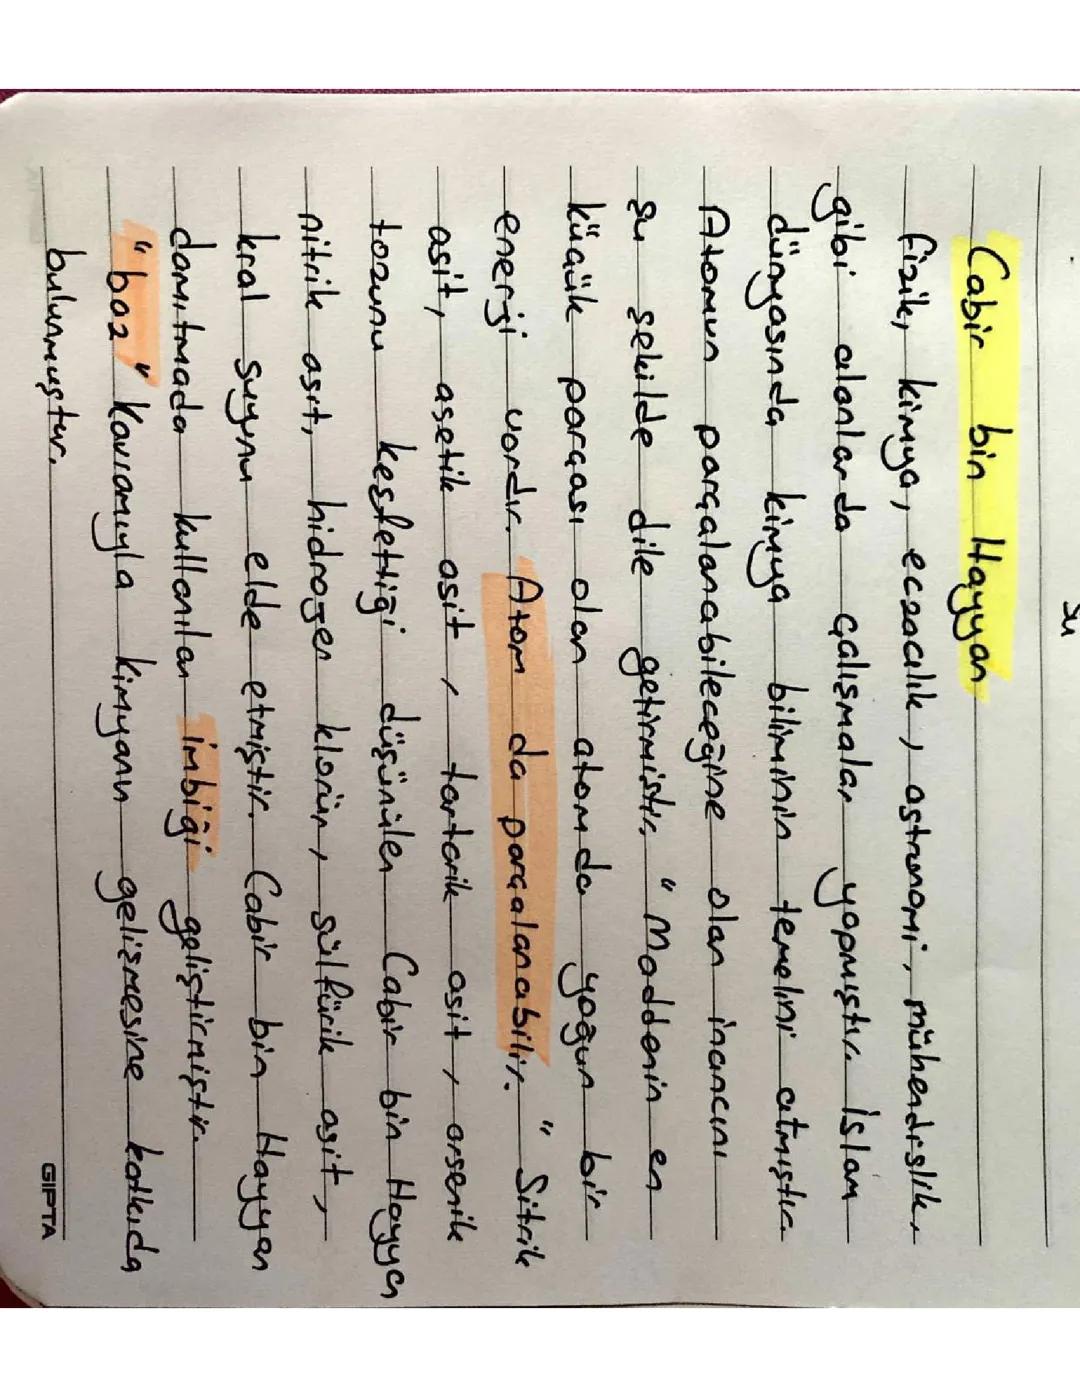 Su
Cabir bin Hayyan
fizik, kimya, eczacılık, astronomi, mühendislik,
gibi alanlarda çalışmalar yapmıştır. İslam
dünyasında kimya biliminin temelini atmıştır.
Atomun parçalanabileceğine olan inancını
şu şekilde dile getirmiştir. "Maddenin en
küçük parçası olan atomda yoğun bir
enerji vardır. Atom da parçalanabilir." Sitrik
asit, asetik asit, tartarik asit, arsenik
tozunu keşfettiği düşünülen Cabir bin Hayyan
nitrik asit, hidrojen klorür, sülfürik asit,
kral suyunu elde etmiştir. Cabir bin Hayyan
damıtmada kullanılan imbiği geliştirmiştir.
"baz" kavramıyla kimyanın gelişmesine katkıda
bulunmuştur.
GIPTA